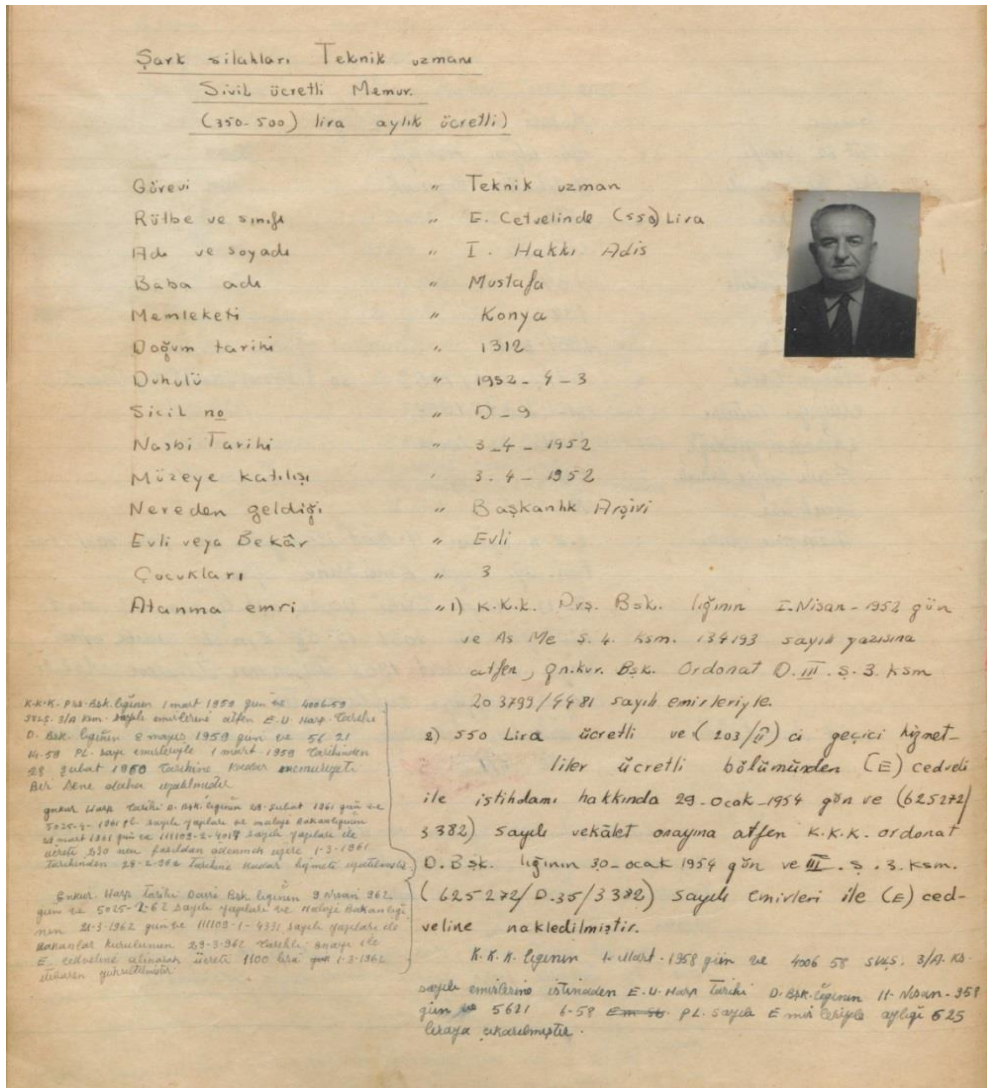 Şark silahları Teknik uzmanı
Sivil ücretli Memur.
(350-500) lira aylık ücretli)
Görevi " Teknik uzman
Rütbe ve sınıfı " E. Cetvelinde (550) Lira
Adı ve soyadı " I. Hakkı Adis
Baba adı " Mustafa
Memleketi " Konya
Doğum tarihi " 1312
Duhulü " 1952-4-3
Sicil no " D-9
Nasbi Tarihi " 3-4-1952
Müzeye katılışı " 3.4-1952
Nereden geldiği " Başkanlık Arşivi
Evli veya Bekâr " Evli
Çocukları " 3
Atanma emri " 1) K.K.K. Drş. Bşk. lığının I.Nisan-1952 gün
ve As Me Ş. 4. Ksm. 134193 sayılı yazısına
atfen, gn.kur. Bşk. Ordonat D.III.Ş.3.Ksm
20 3799/4481 sayılı emirleriyle.
2) 550 Lira ücretli ve (203/II) ci geçici hizmet-
liler ücretli bölümünden (E) cedveli
ile istihdamı hakkında 29-ocak-1954 gün ve (625272/
3382) sayılı vekâlet onayına atfen K.K.K. ordonat
D.Bşk. lığının 30-ocak 1954 gün ve III.Ş.3.Ksm.
(625272/D.35/3382) sayılı emirleri ile (E) ced-
veline nakledilmiştir.
K.K.K. lığının 1-Mart-1958 gün ve 4006 58 3/A.Ks.
sayılı emirlerine istinaden E.U.Harp Tarihi D.Bşk.lığının 11-Nisan-958
gün ve 5621 6-58 PL. sayılı Emirleriyle aylığı 625
liraya çıkarılmıştır.
K.K.K. Bşk.lığının 1 mart 1959 gün ve 4006-59
3/A Ksm. sayılı emirlerine atfen E.U. Harp Tarihi
D. Bşk. lığının 8 mayıs 1959 gün ve 56 21
14-59 PL. sayılı emirleriyle 1 mart 1959 tarihinden
28 Şubat 1960 tarihine kadar memuriyeti
Bir sene daha uzatılmıştır
gnkur Harp Tarihi D.Bşk.lığının Şubat 1961 gün ve
5025-4-1961 PL sayılı yazıları ve maliye Bakanlığının
mart 1961 gün ve 111103-2-4017 sayılı yazıları ile
ücreti fasıldan ödenmek üzere 1-3-1961
tarihinden 28-2-962 tarihine kadar hizmeti uzatılmıştır
Gnkur. Harp Tarihi Dairi Bşk lığının 9 Nisan 962
gün ve 5025-2-62 sayılı yazıları ve Maliye Bakanlığı-
nın 21-3-1962 gün ve 111103-1-4331 sayılı yazıları ile
Bakanlar kurulunun 29-3-962 tarihli onayı ile
E cedveline alınarak ücreti 1100 lira 1-3-1962
itibaren yükseltilmiştir